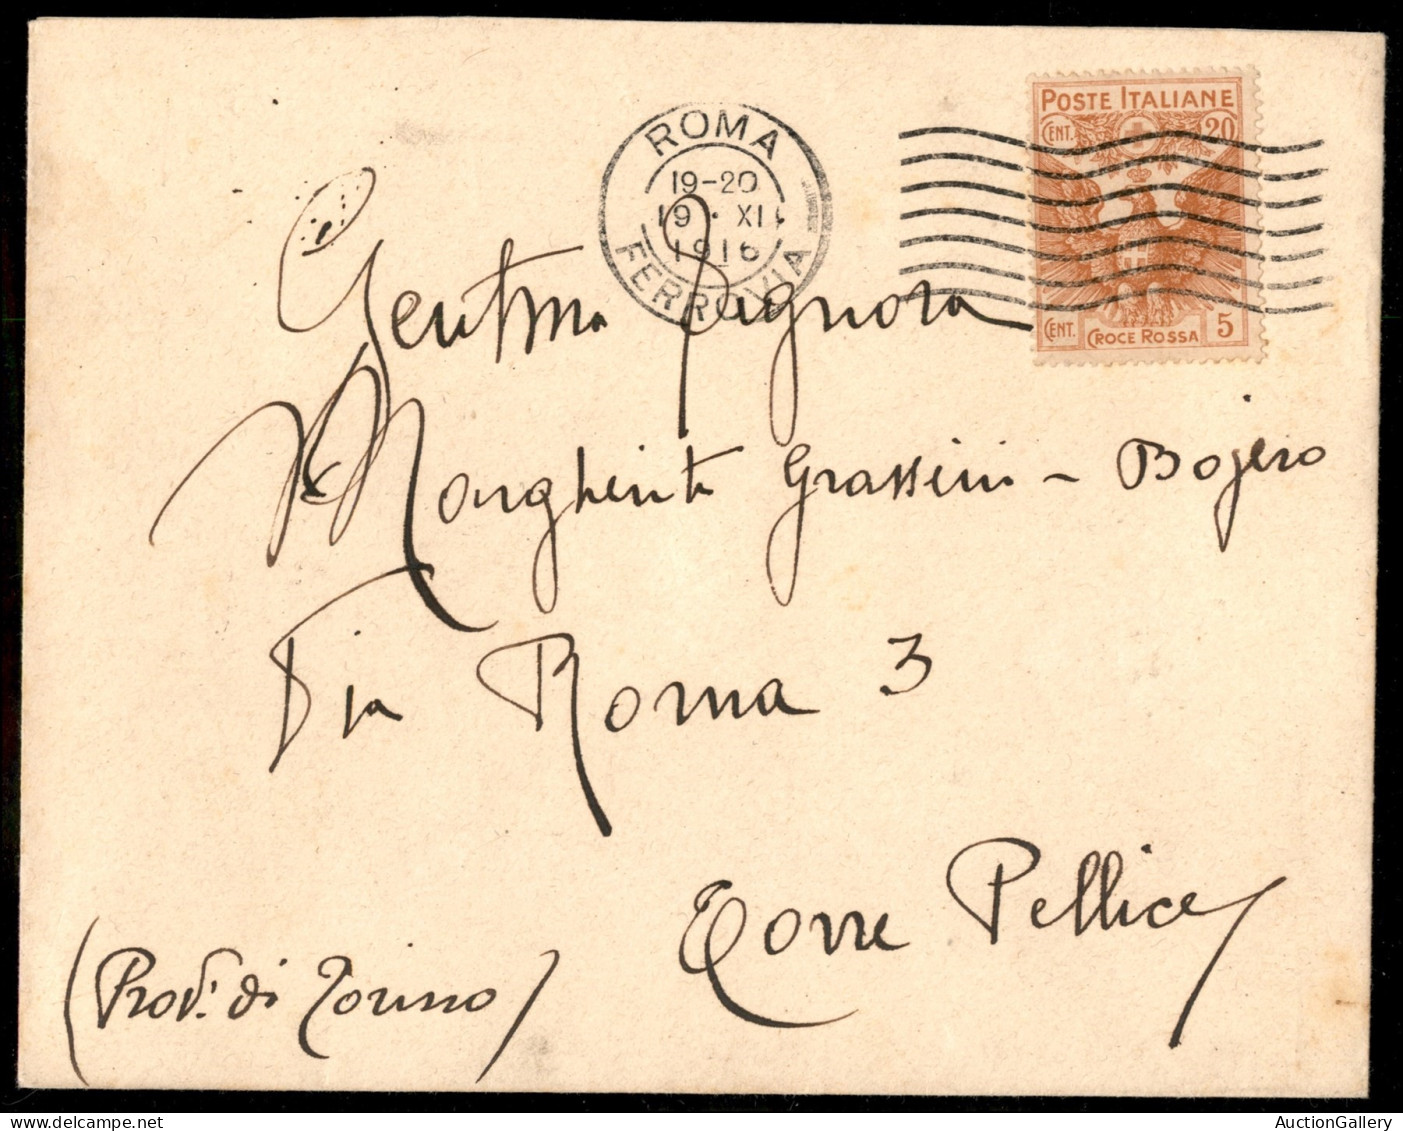 ROMA
19-20
19 · XII
1916
FERROVIA
POSTE ITALIANE
CENT. 20
CENT. 5
CROCE ROSSA
Gentma Signora
Margherita Grassini - Bojero
Via Roma 3
Torre Pellice
(Prov. di Torino)
AuctionGallery